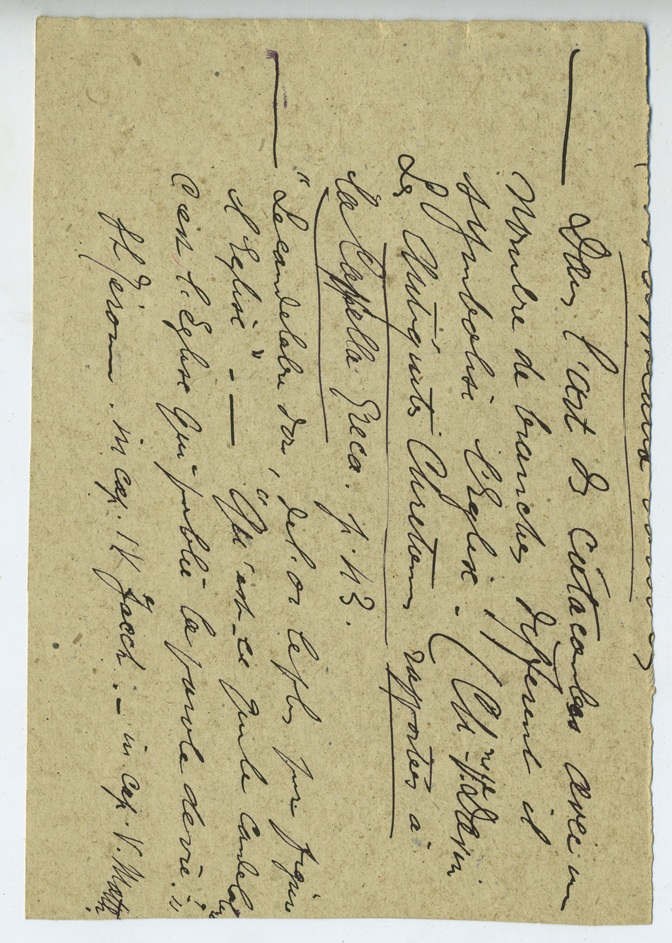 — Dans l'art des catacombes avec un
nombre de branches différent il
symbolise l'Eglise. (Ch.
Les Antiquités Chretiennes rapportées à
la Cappella Greca. p. 43.
— "Le candelabre d'or, de l'or le plus pur figure
l'Eglise" — "Qu'est-ce que le candelabre
C'est l'Eglise qui publie la parole de vie."
St Jérome. in cap. IV Zacch. — in cap. V. Matth